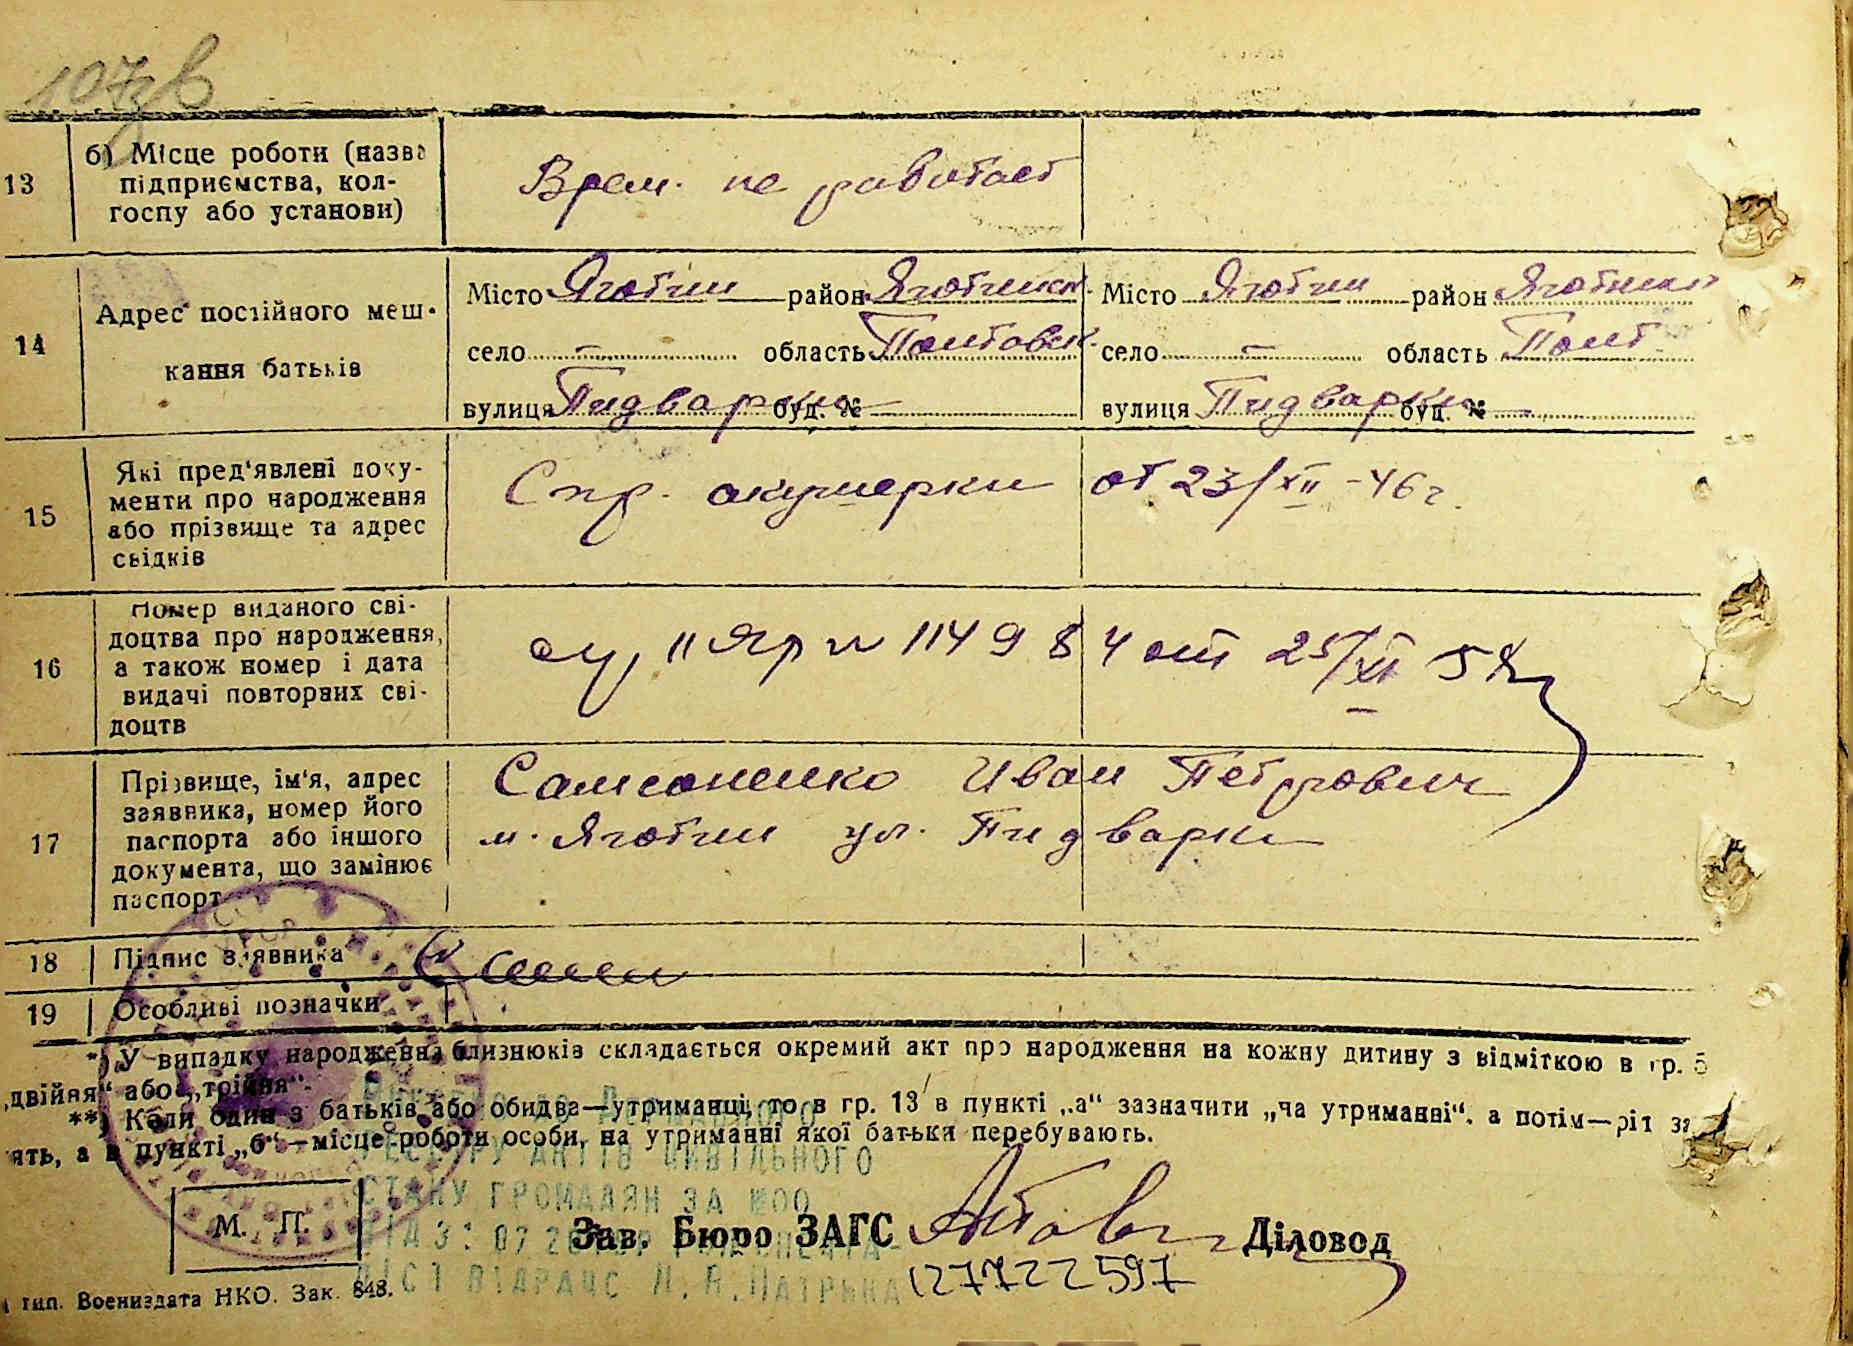 107зв
13 б) Місце роботи (назва підприємства, колгоспу або установи) Врем. не работает
14 Адрес постійного мешкання батьків
Місто Яготин район Яготинск. Місто Яготин район Яготинск
село — область Полтавск. село — область Полт
вулиця Пидварки буд. № — вулиця Пидварки буд. № —
15 Які пред'явлені доку-
менти про народження
або прізвище та адрес
свідків
Спр. акушерки от 23/XII-46 г.
16 Номер виданого сві-
доцтва про народження,
а також номер і дата
видачі повторних сві-
доцтв
№ 114984 от 25/XI
17 Прізвище, ім'я, адрес
заявника, номер його
паспорта або іншого
документа, що замінює
паспорт
Самсоненко Иван Петрович
м. Яготин ул. Пидварки
18 Підпис заявника
19 Особливі позначки
*) У випадку народження близнюків складається окремий акт про народження на кожну дитину з відміткою в гр. 5
„двійня“ або „трійня“.
**) Коли один з батьків або обидва—утриманці, то в гр. 13 в пункті „а“ зазначити „на утриманні“, а потім—
а в пункті „б“—місце роботи особи, на утриманні якої батьки перебувають.
РЕЄСТРУ АКТІВ ЦИВІЛЬНОГО
СТАНУ ГРОМАДЯН ЗА №00
М. П. Зав. Бюро ЗАГС Діловод
127722597
тип. Воениздата НКО. Зак. 848.